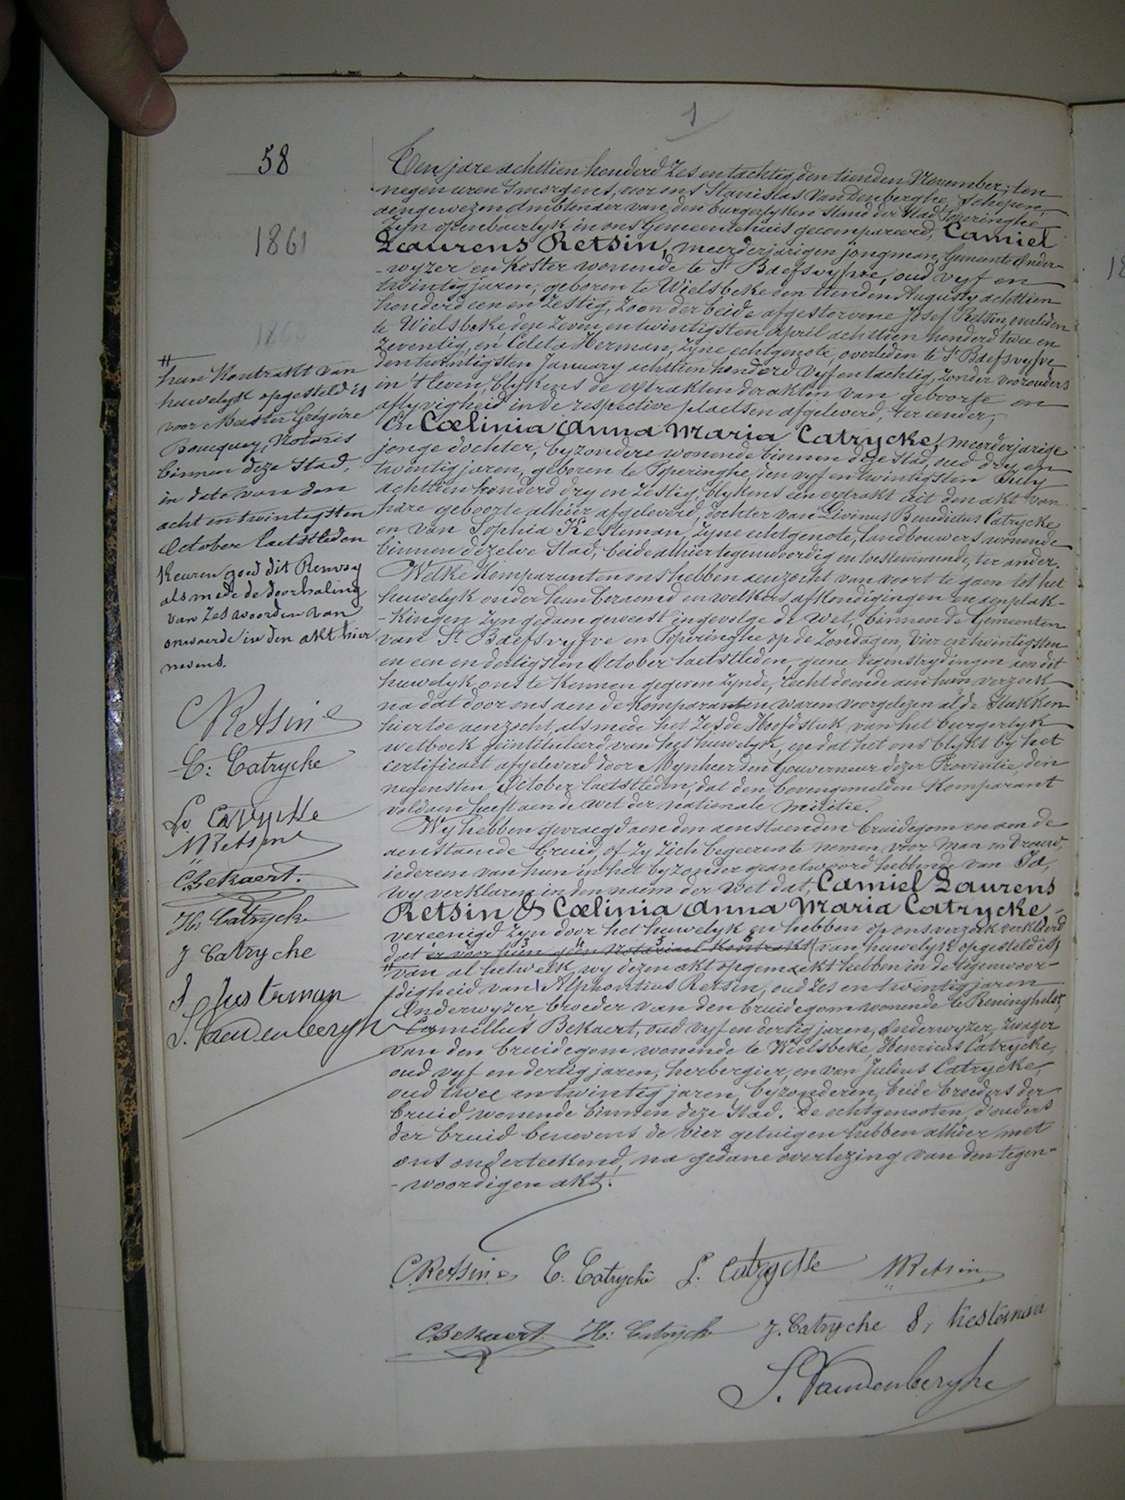 1
58
1861
Ten jare achttien honderd zes en tachtig, den tienden November, ten
negen uren 's morgens, voor ons Stanislas Vandenberghe, Schepen,
aengewezen Ambtenaer van den burgerlyken stand der Stad Poperinghe
zyn openbaerlyk in ons Gemeentehuis gecompareerd, Camiel
Laurens Retsin, meerderjarigen jongman, Gemeente Onder-
-wyzer en koster wonende te St Baefsvyfve, oud vyf en
twintig jaren, geboren te Wielsbeke den tienden Augusty achttien
honderd een en zestig, zoon der beide afgestorvene Josef Retsin, overleden
te Wielsbeke den zeven en twintigsten April achttien honderd twee en
zeventig, en Coleta Herman, zyne echtgenote, overleden te St Baefsvyfve
den twintigsten January achttien honderd vyf en tachtig, zonder voorouders
in 't leven, blykens de extrakten der akten van geboorte en
aflyvigheid in de respective plaetsen afgeleverd, ter eender,
En Cœlinia Anna Maria Catrycke, meerderjarige
jonge dochter, byzondere wonende binnen deze Stad, oud dry en
twintig jaren, geboren te Poperinghe, den vyf en twintigsten July
achttien honderd dry en zestig, blykens een extrakt uit den akt van
hare geboorte alhier afgeleverd, dochter van Livinus Benedictus Catrycke
en van Sophia Kesteman, zyne echtgenote, landbouwers wonende
binnen dezelve Stad, beide alhier tegenwoordig en toestemmende, ter ander.
Welke Komparanten ons hebben aenzocht van voort te gaen tot het
huwelyk onder hun beraemd en welkers afkondigingen en aenplak-
-kingen zyn gedaen geweest ingevolge de wet, binnen de Gemeenten
van St Baefsvyfve en Poperinghe op de Zondagen, vier en twintigsten
en een en dertigsten October laetstleden, geene tegenstrydingen aen dit
huwelyk ons te kennen gegeven zynde, recht doende aen hun verzoek
na dat door ons aen de Komparanten waren voorgelezen al de Stukken
hiertoe aenzocht als mede het Zesde Hoofdstuk van het burgerlyk
wetboek geïntituleerd van het huwelyk, en dat het ons blykt by het
certificaet afgeleverd door Mynheer den Gouverneur dezer Provintie, den
negensten October laetstleden, dat den bovengemelden Komparant
voldaen heeft aen de wet der nationale Militie.
Wy hebben gevraegd aen den aenstaenden bruidegom en aen de
aenstaende bruid, of zy zich begeeren te nemen, voor man en vrouw,
iederen van hun in het byzonder geantwoord hebbende van Ja,
wy verklaren in den naem der wet dat, Camiel Laurens
Retsin & Cœlinia Anna Maria Catrycke,
vereenigd zyn door het huwelyk en hebben op ons verzoek verklaerd
dat er voor hun een Notariael Kontrakt van huwelyk opgesteld is
van al hetwelk, wy dezen akt opgemaekt hebben in de tegenwoor-
-digheid van Alphontius Retsin, oud zes en twintig jaren
Onderwyzer, broeder van den bruidegom wonende te Reninghelst,
Camillus Bekaert, oud vyf en dertig jaren, Onderwyzer, zwager
van den bruidegom wonende te Wielsbeke, Henricus Catrycke,
oud vyf en dertig jaren, herbergier, en van Julius Catrycke,
oud twee en twintig jaren, byzonderen, beide broeders der
bruid wonende binnen deze Stad. De echtgenooten, d'ouders
der bruid benevens de vier getuigen hebben alhier met
ons onderteekend, na gedane overlezing van den tegen-
-woordigen akt.
hun Kontrakt van
huwelyk opgesteld is
voor Meester Grégoire
Notaris
binnen deze Stad,
in dato van den
acht en twintigsten
October laetstleden
Keuren goed dit Renvoy
als mede de doorhaling
van zes woorden van
onwaerde in den akt hier
nevens.
C Retsin
C: Catrycke
Lv Catrycke
A Retsin
C. Bekaert.
H: Catrycke
J Catrycke
S Kesteman
S. Vandenberghe
C. Retsin C: Catrycke L. Catrycke A Retsin
C. Bekaert H: Catrycke J. Catrycke S, Kesteman
S. Vandenberghe